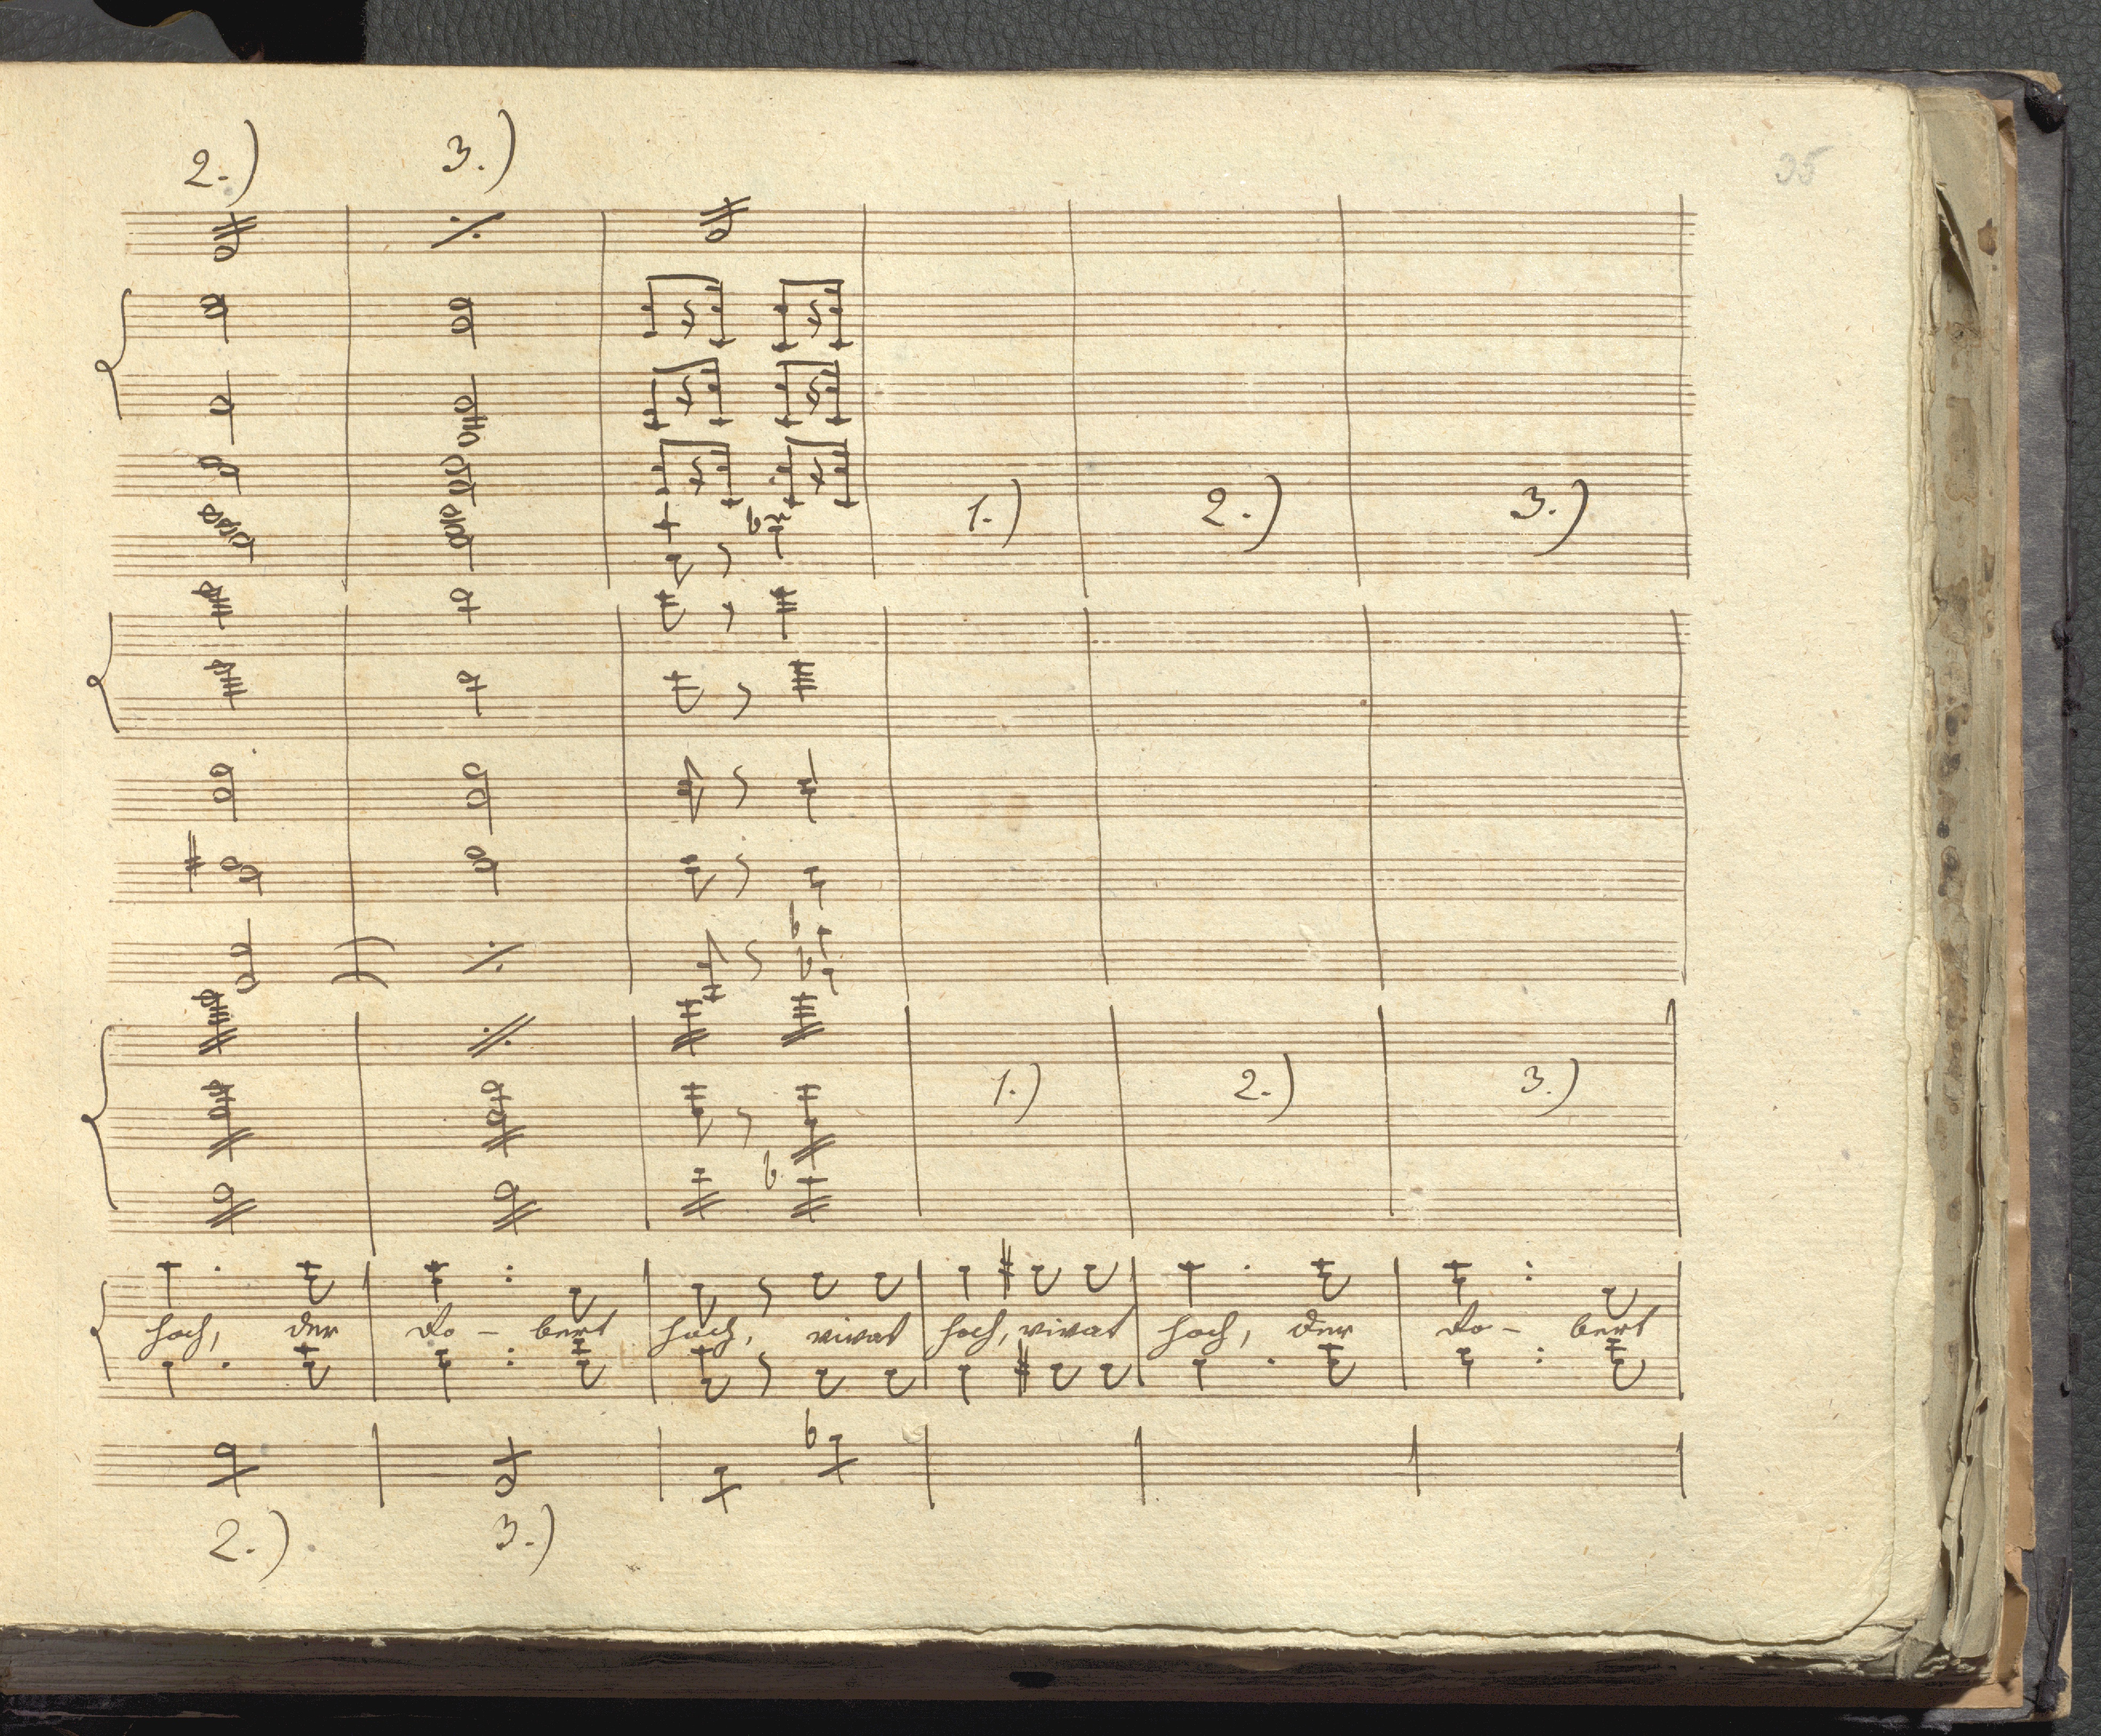 35
2.) 3.)
1.) 2.) 3.)
1.) 2.) 3.)
hoch, der Ro - bert hoch, vivat hoch, vivat hoch, der Ro - bert
2.) 3.)